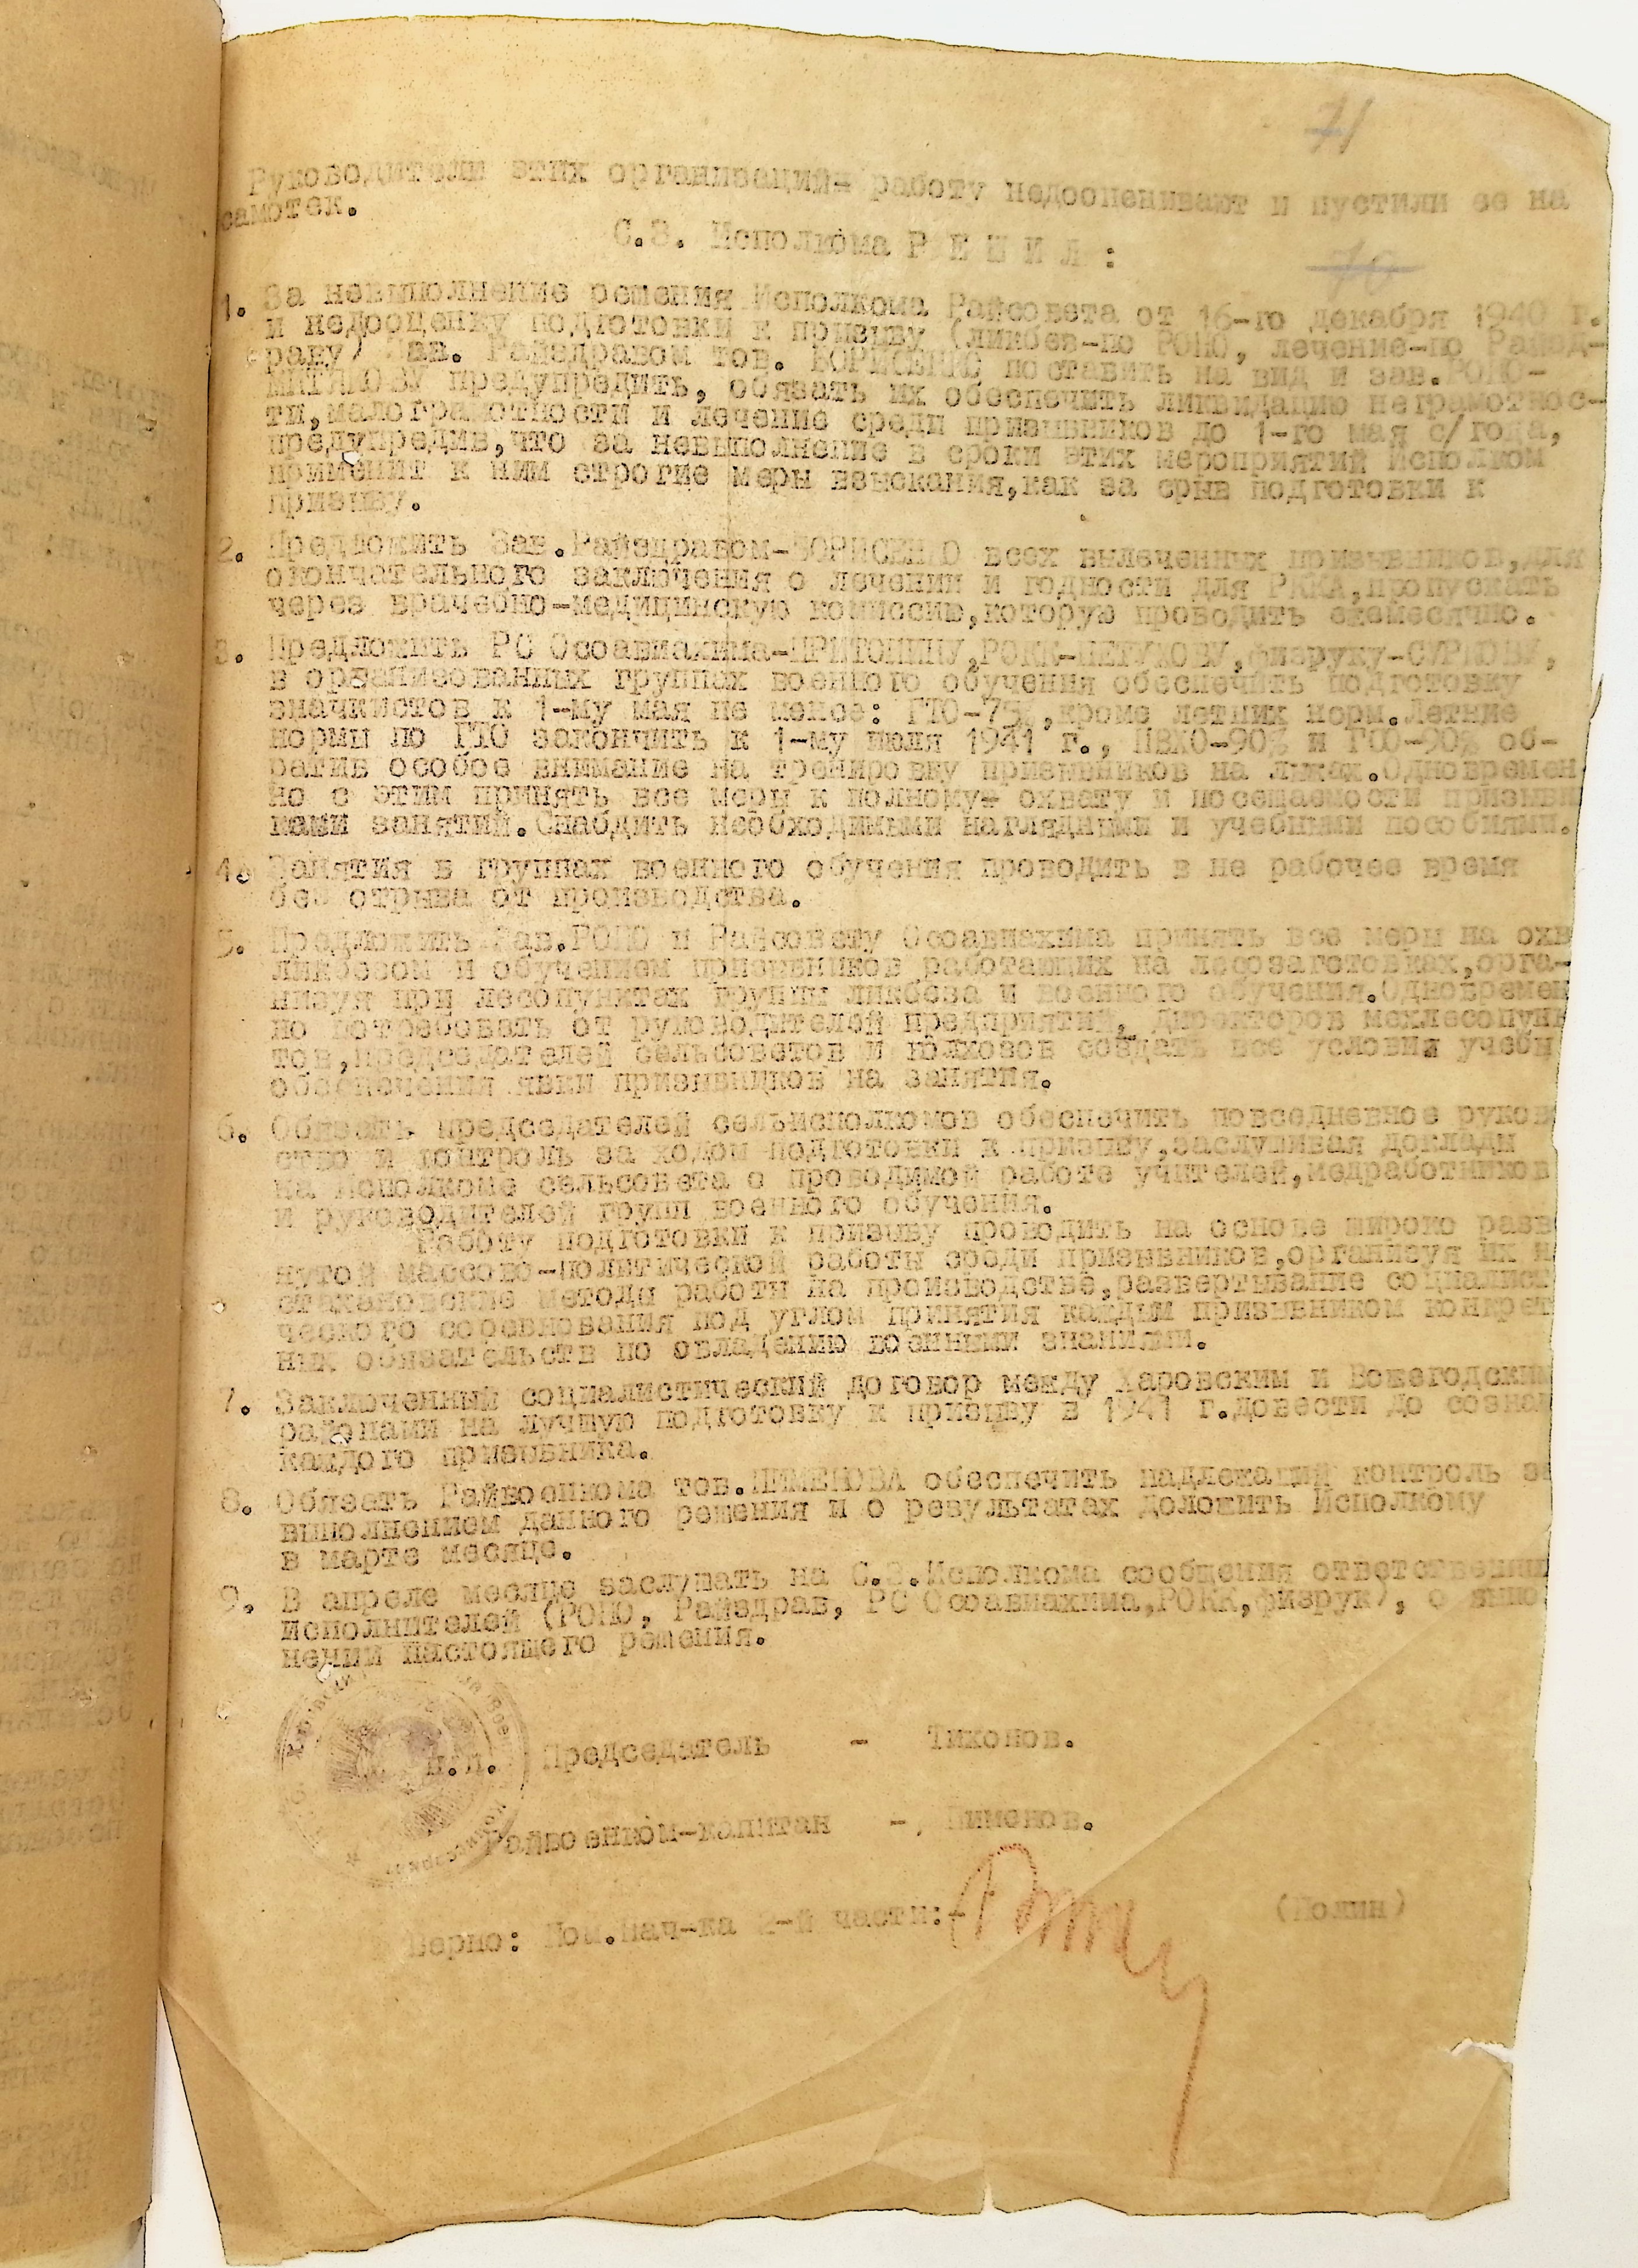 71
Руководители этих организаций- работу недооценивают и пустили ее на
самотек.
С.З. Исполкома Р Е Ш И Л :
1. За невыполнение решения Исполкома Райсовета от 16-го декабря 1940 г.
и недооценку подготовки к призыву (ликбез-по РОНО, лечение-по Райзд-
раву) Зав. Райздравом тов. БОРИСЕНКО поставить на вид и зав.РОНО-
предупредить, обязать их обеспечить ликвидацию неграмотнос-
ти,малограмотности и лечение среди призывников до 1-го мая с/года,
предупредив,что за невыполнение в сроки этих мероприятий Исполком
применит к ним строгие меры взыскания,как за срыв подготовки к
призыву.
2. Предложить Зав.Райздравом-БОРИСЕНКО всех вылеченных призывников,для
окончательного заключения о лечении и годности для РККА,пропускать
через врачебно-медицинскую комиссию,которую проводить ежемесячно.
3. Предложить РС Осоавиахима-ПРИТОНИНУ,РОКК-ПЕТУХОВУ,физруку-СУРКОВУ,
в организованных группах военного обучения обеспечить подготовку
значкистов к 1-му мая не менее: ГТО-75%,кроме летних норм.Летние
нормы по ГТО закончить к 1-му июля 1941 г., ПВХО-90% и ГСО-90% об-
ратив особое внимание на тренировку призывников на лыжах.Одновремен
но с этим принять все меры к полному охвату и посещаемости призывн
ками занятий.Снабдить необходимыми наглядными и учебными пособиями.
4. Занятия в группах военного обучения проводить в не рабочее время
без отрыва от производства.
5. Предложить Зав.РОНО и Райсовету Осоавиахима принять все меры на охв
ликбезом и обучением призывников работающих на лесозаготовках,орга-
низуя при лесопунктах группы ликбеза и военного обучения.Одновремен
но потребовать от руководителей предприятий, директоров мехлесопунк
тов,председателей сельсоветов и колхозов создать все условия учебы
обеспечения явки призывников на занятия.
6. Обязать председателей сельисполкомов обеспечить повседневное руков
ство и контроль за ходом подготовки к призыву,заслушивая доклады
на Исполкоме сельсовета о проводимой работе учителей,медработников
и руководителей групп военного обучения.
Работу подготовки к призыву проводить на основе широко разв
нутой массово-политической работы среди призывников,организуя их н
стахановские методы работы на производстве,развертывание социалист
ческого соревнования под углом принятия каждым призывником конкрет
ных обязательств по овладению военными знаниями.
7. Заключенный социалистический договор между Харовским и Вожегодским
районами на лучшую подготовку к призыву в 1941 г.довести до сознан
каждого призывника.
8. Обязать Райвоенкома тов.ПИМЕНОВА обеспечить надлежащий контроль за
выполнением данного решения и о результатах доложить Исполкому
в марте месяце.
9. В апреле месяце заслушать на С.З.Исполкома сообщения ответственных
исполнителей (РОНО, Райздрав, РС Осоавиахима,РОКК,физрук), о выпо
нении настоящего решения.
п.п. Председатель - Тихонов.
Райвоенком-капитан -, Пименов.
Верно: Пом.Нач-ка 2-й части:-